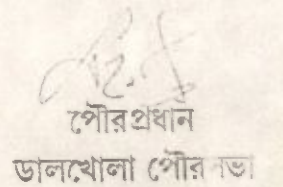 পৌরপ্রধান
ডালখোলা পৌরসভা